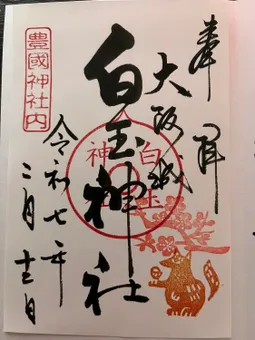 奉拝
大阪城
白玉神社
白玉神社
豊國神社内
令和七年
二月十二日